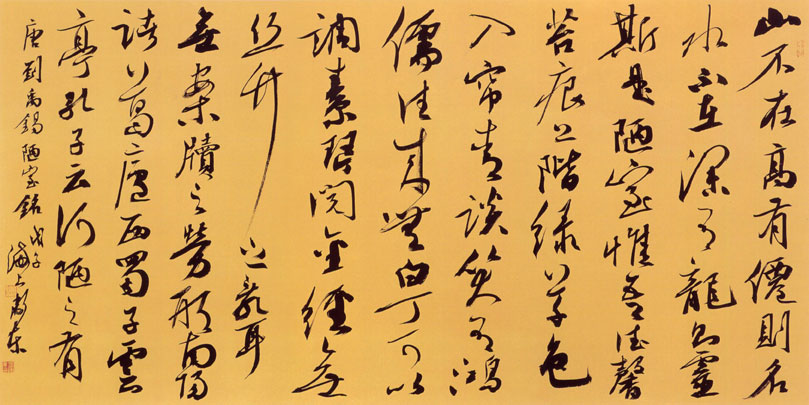 山不在高有僊則名
水不在深有龍則靈
斯是陋室惟吾德馨
苔痕上階綠草色
入帘青談笑有鴻
儒往來無白丁可以
調素琴閱金經無
丝竹之亂耳
無案牘之勞形南陽
諸葛廬西蜀子雲
亭孔子云何陋之有
唐劉禹錫陋室銘戊子
海上